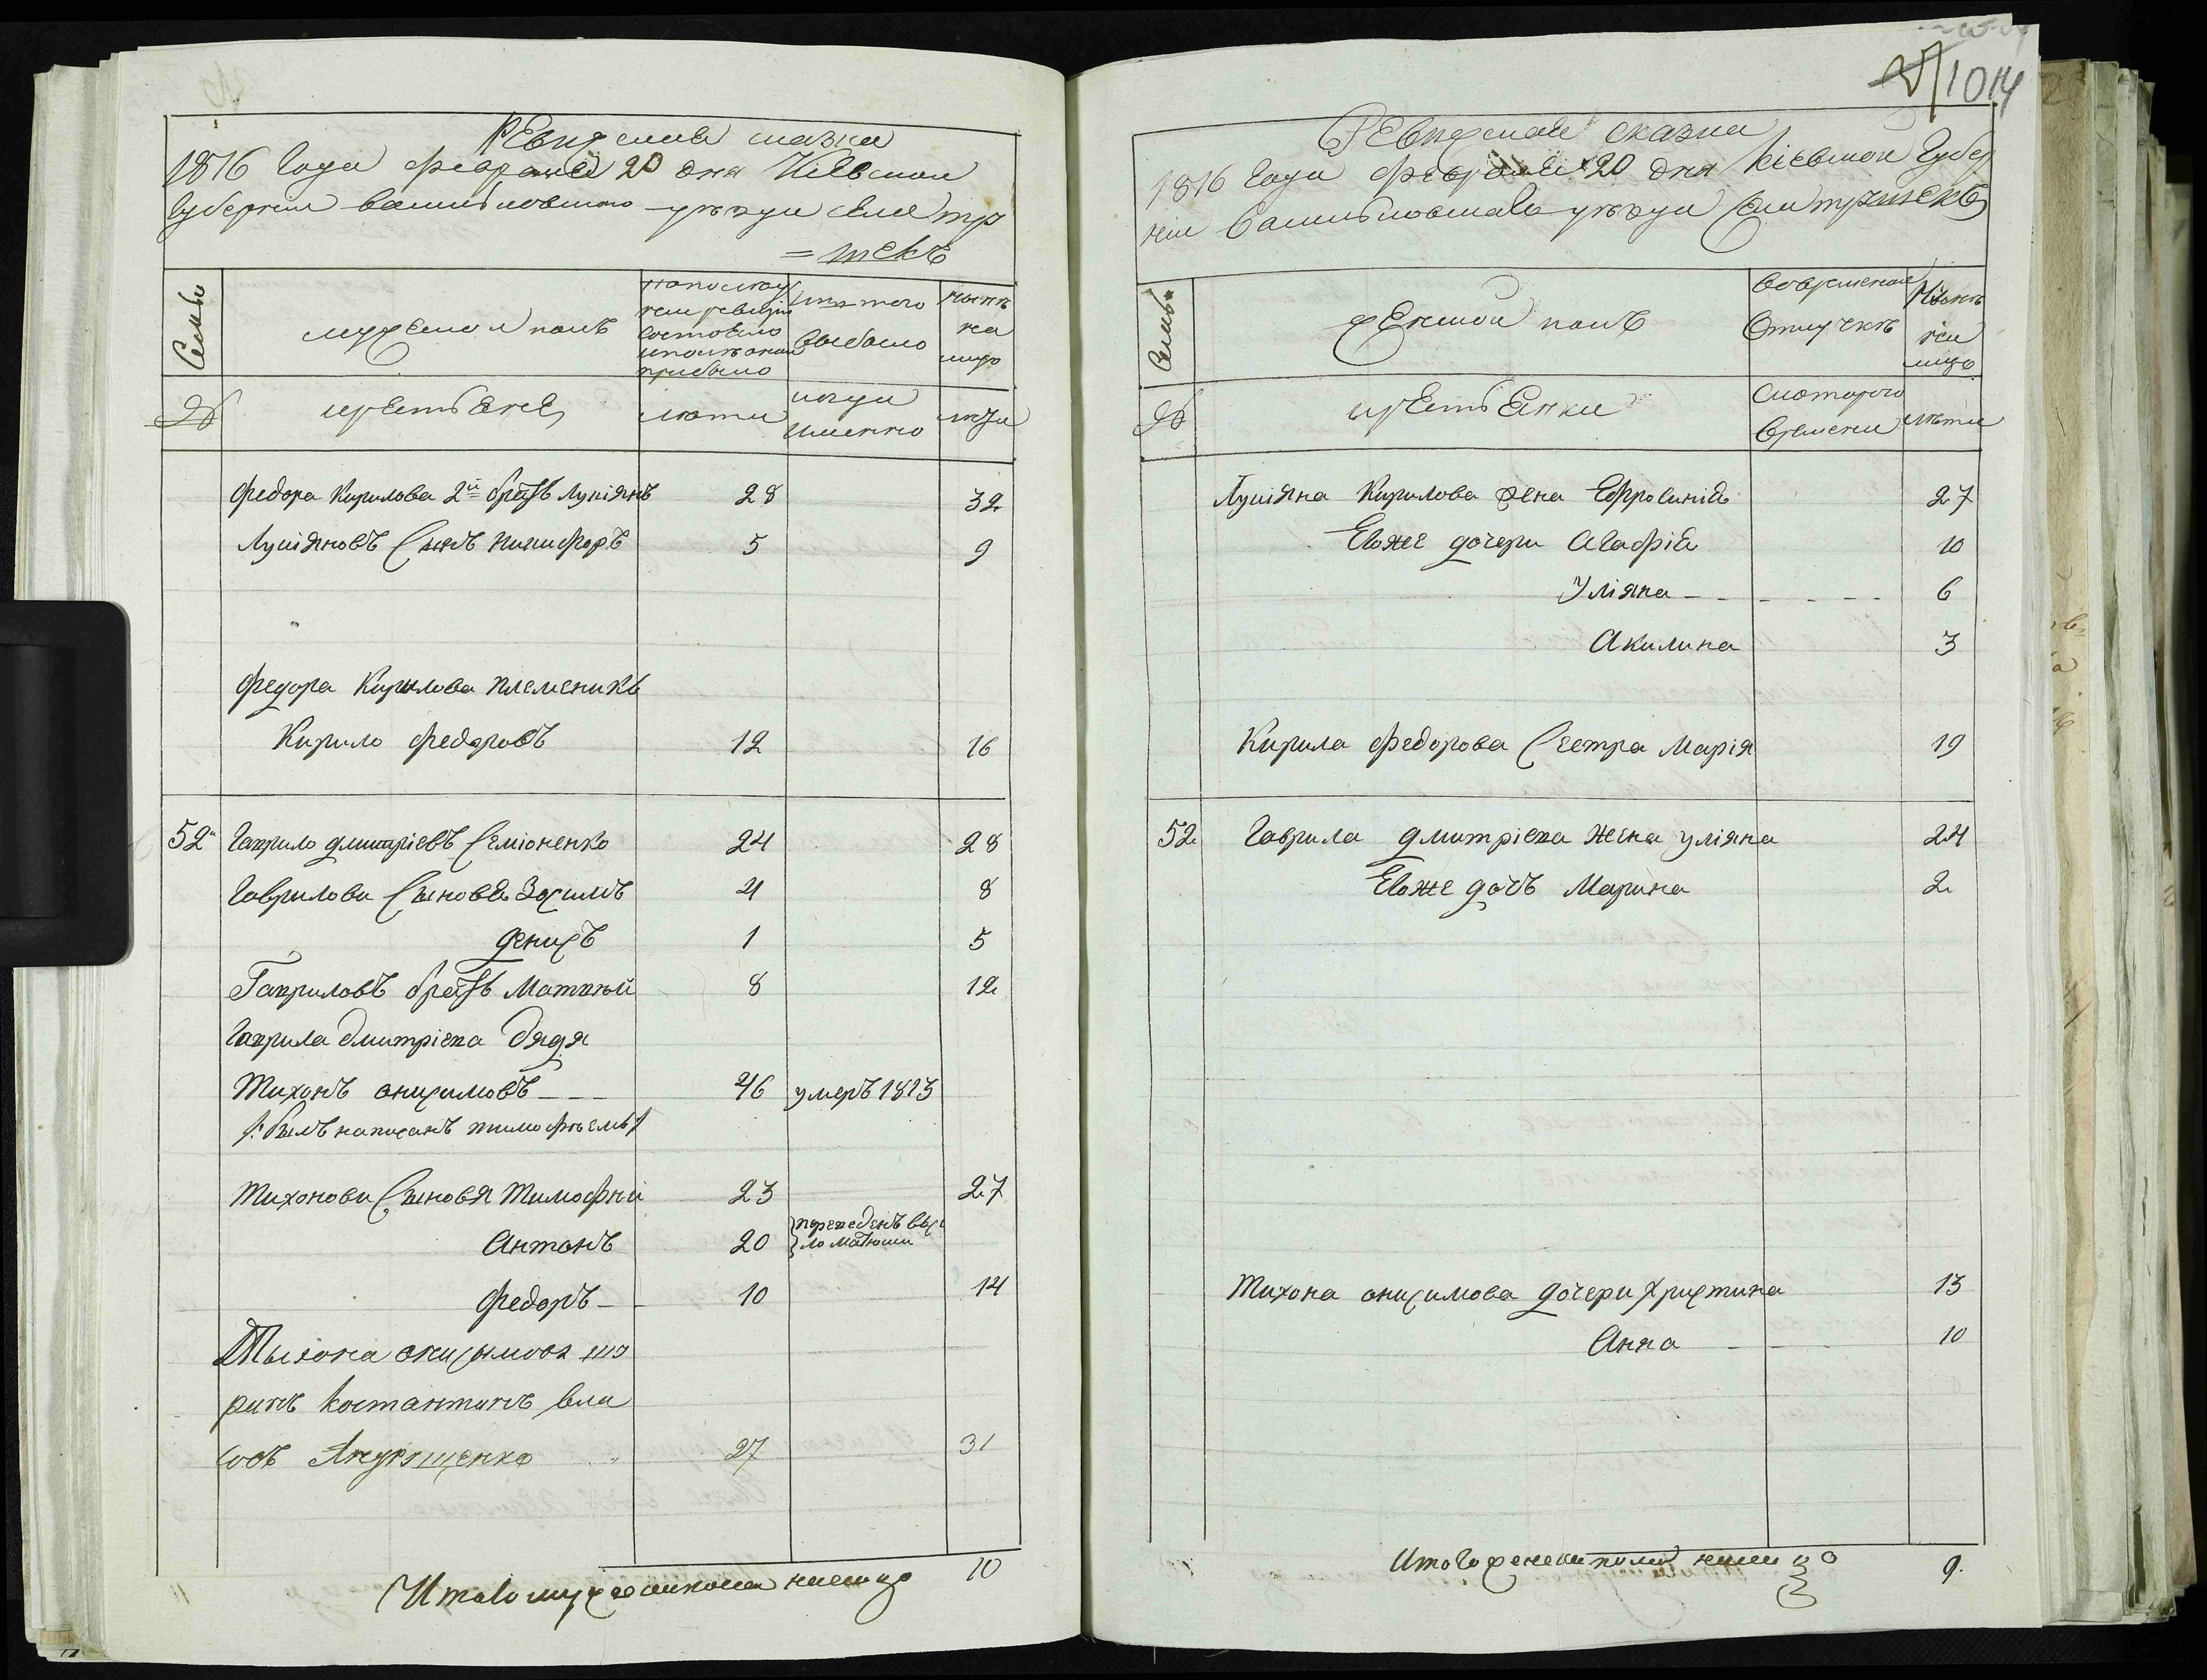 Ревизская сказка
1816 Года февраля 20 дня Кіевской
Губерніи васильковскаго уѣзда села
Семья
мужеской полъ
попослѣд
ней ревизіи
состояло
и послѣ оной
прибыло
изъ того
выбыло
нынѣ
на
лицо
№
крестьяне
лѣта
когда
именно
лѣта
Федора Кирилова 2й братъ Лукіянъ 28 32
Лукіяновъ Сынъ никифоръ 5 9
Федора Кирилова племеникъ
Кирило Федоровъ 12 16
52 Гаврило дмитріевъ Семіоненко 24 28
Гаврилови Сыновя Зосимъ 4 8
денисъ 1 5
Гавриловъ братъ Матвѣй 8 12
Гаврила дмитріева дядя
Тихонъ онисимовъ 46 умеръ 1813
/: былъ написанъ тимофѣемъ :/
Тихонови Сыновя Тимофѣй 23 27
Антонъ 20 переведенъ в се
ло матюши
Федоръ 10 14
Тыхона онисымова шо
ринъ костантинъ вла
совъ Андрущенко 27 31
Итого мужеска пола налицо 10
1014
Ревизская сказка
1816 Года Февраля 20 дня Кіевской Губер
ніи Васильковскаго уѣзда села
Семья
Женской полъ
вовременной
Отлучкѣ
Нынѣ
на
лицо
№
крестьянки
Скотораго
времени
лѣта
Лукіяна Кирилова жена Ефросинія 27
Егоже дочери Агафія 10
Уліяна 6
Акилина 3
Кирила Федорова Сестра Марія 19
52 Гаврила дмитріева жена уліяна 24
Егоже дочъ Марина 2
Тихона онисимова дочери Христина 13
Анна 10
Итого женска пола налицо 9.